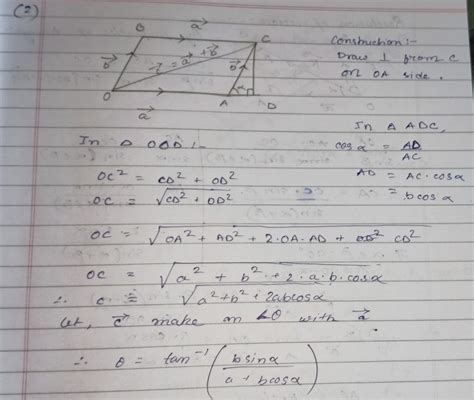 (2)
B a⃗ C
Construction:-
Draw ⊥ from C
on OA side.
b⃗ c⃗ = a⃗ + b⃗ b⃗
O a⃗ A α D
In Δ ADC,
cosα = AD/AC
AD = AC·cosα
= bcosα
In Δ OCD:-
OC² = CD² + OD²
OC = √(CD² + OD²)
OC = √(OA² + AD² + 2·OA·AD + CD²)
OC = √(a² + b² + 2·a·b·cosα)
∴ c = √(a² + b² + 2abcosα)
Let, c⃗ make an ∠θ with a⃗
∴ θ = tan⁻¹(bsinα/(a + bcosα))